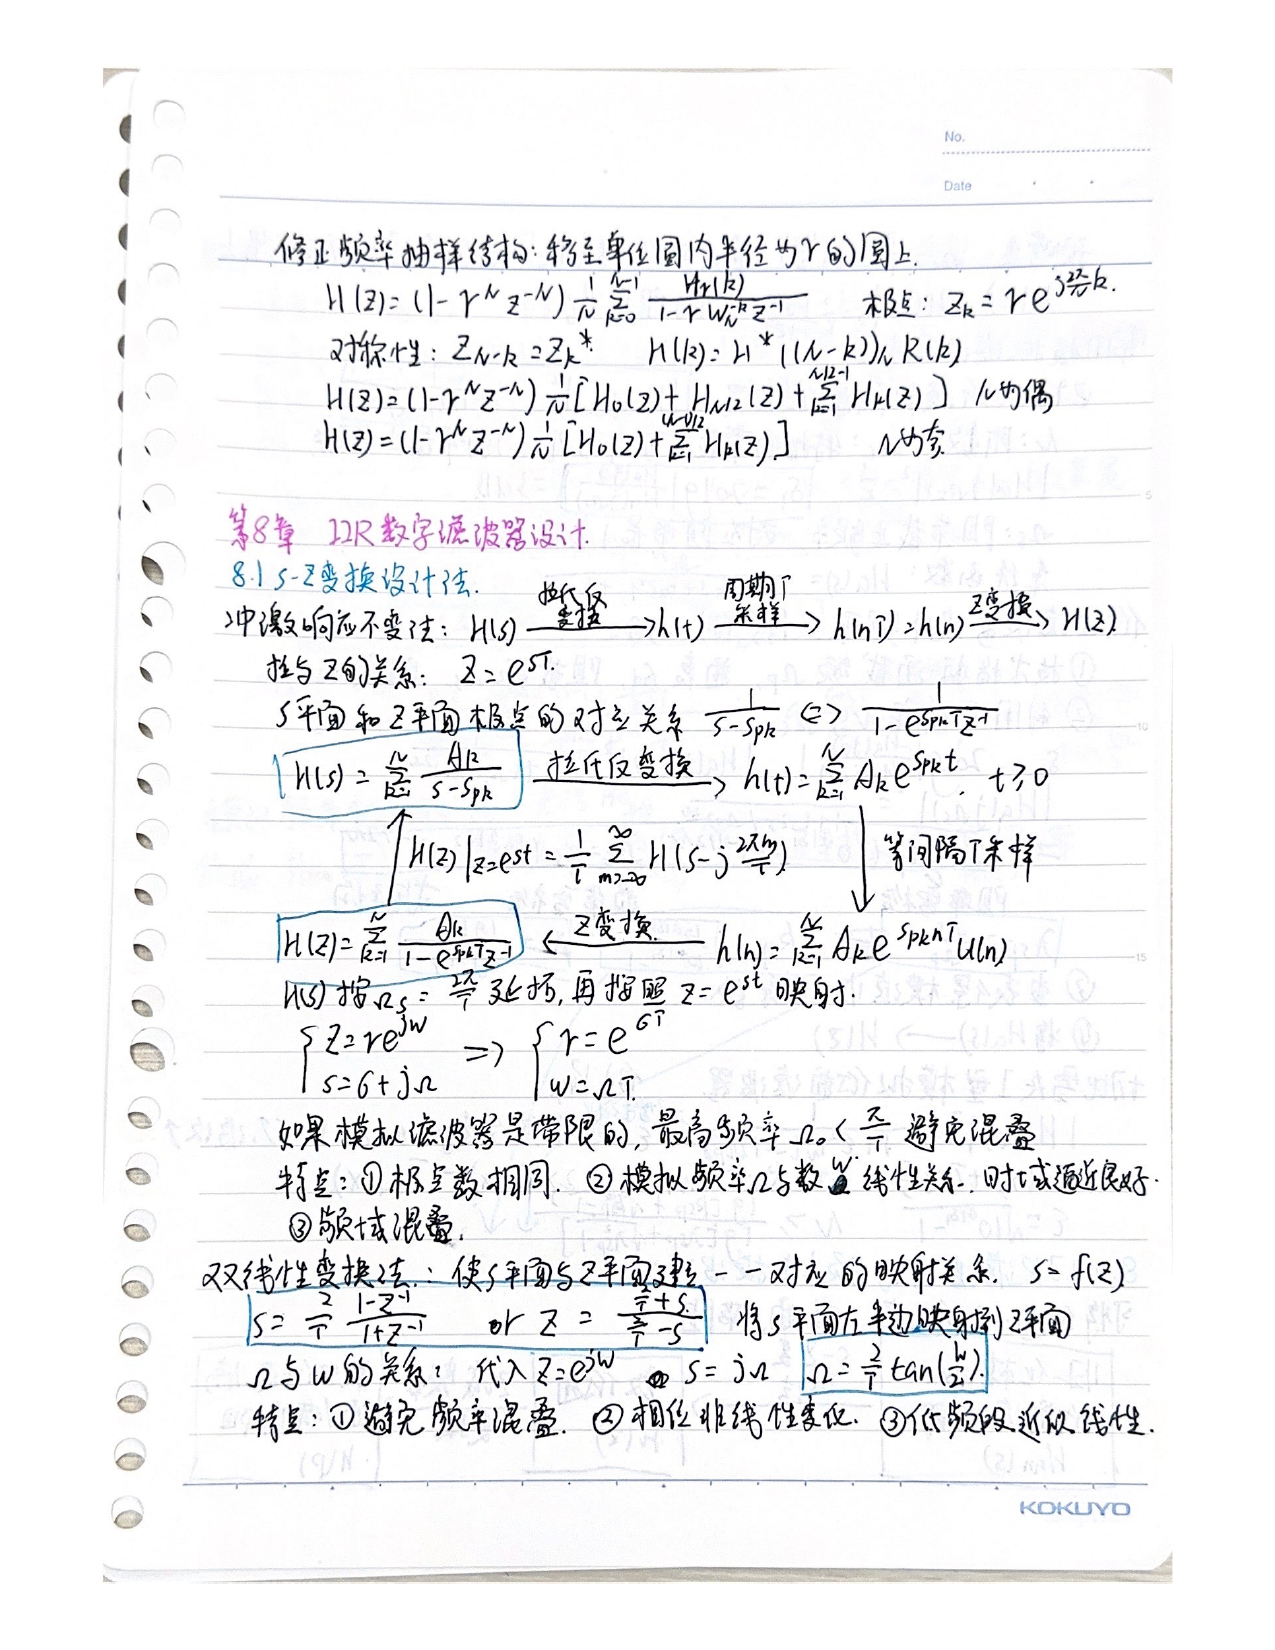 No.
Date
修正频率抽样结构: 移至单位圆内半径为r的圆上.
H(z)=(1-r^N z^{-N}) 1/N Σ_{k=0}^{N-1} Hr(k)/(1-rW_N^{-k}z^{-1}) 极点: z_k=re^{j2π/N k}.
对称性: Z_{N-k}=Z_k^*. H(k)=H^*((N-k))_N R(k)
H(z)=(1-r^N z^{-N}) 1/N [H_0(z)+H_{N/2}(z)+Σ_{k=1}^{N/2-1} H_k(z)] N为偶
H(z)=(1-r^N z^{-N}) 1/N [H_0(z)+Σ_{k=1}^{(N-1)/2} H_k(z)] N为奇
第8章 IIR数字滤波器设计.
8.1 s-Z变换设计法.
冲激响应不变法: H(s) —拉氏反变换→ h(t) —周期T采样→ h(nT)=h(n) —Z变换→ H(z)
拉与Z的关系: Z=e^{sT}.
S平面和Z平面极点的对应关系 1/(s-s_{pk}) <=> 1/(1-e^{s_{pk}T}z^{-1})
H(s)=Σ_{k=1}^{N} A_k/(s-s_{pk}) —拉氏反变换→ h(t)=Σ_{k=1}^{N} A_k e^{s_{pk}t}. t≥0
H(z)|z=e^{st}=1/T Σ_{m=-∞}^{∞} H(s-j 2πm/T) 等间隔T采样
H(z)=Σ_{k=1}^{N} A_k/(1-e^{s_{pk}T}z^{-1}) ←Z变换— h(n)=Σ_{k=1}^{N} A_k e^{s_{pk}nT}u(n)
H(s)按Ω_s=2π/T延拓, 再按照z=e^{st}映射.
{z=re^{jw} => {r=e^{σT}
{s=σ+jΩ {w=ΩT.
如果模拟滤波器是带限的, 最高频率Ω_0<π/T 避免混叠
特点: ①极点数相同. ②模拟频率Ω与数w线性关系. 时域逼近良好.
③频域混叠.
双线性变换法: 使s平面与z平面建立一一对应的映射关系. s=f(z)
s=2/T (1-z^{-1})/(1+z^{-1}) or z=(2/T+s)/(2/T-s) 将s平面左半边映射到z平面
Ω与w的关系: 代入z=e^{jw} s=jΩ Ω=2/T tan(w/2).
特点: ①避免频率混叠. ②相位非线性变化. ③低频段近似线性.
KOKUYO